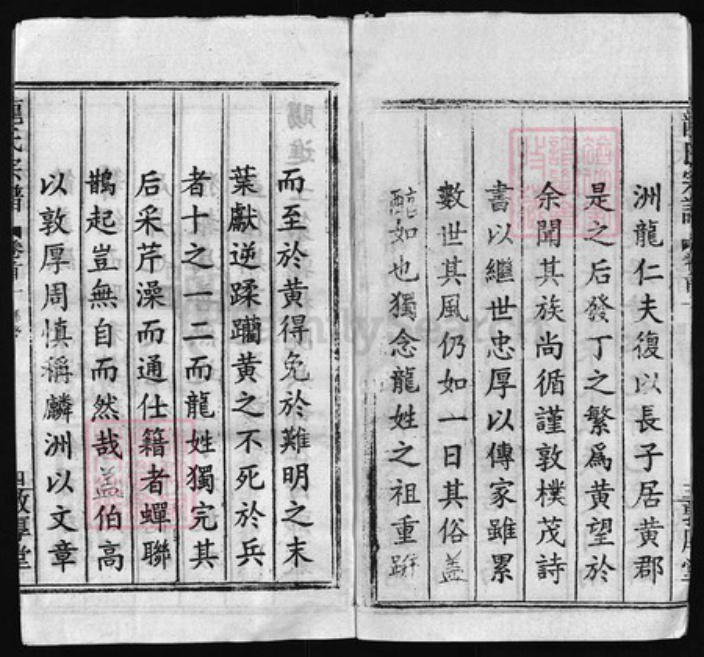 洲龍仁夫復以長子居黄郡
是之后發丁之繁爲黄望於
余聞其族尚循謹敦樸茂詩
書以繼世忠厚以傳家雖累
數世其風仍如一日其俗盖
如也獨念龍姓之祖重
而至於黄得免於難明之末
葉獻逆蹂躪黄之不死於兵
者十之一二而龍姓獨完其
后采芹澡而通仕籍者蟬聯
鵲起豈無自而然哉盖伯高
以敦厚周慎稱麟洲以文章
龍氏宗譜
卷首一
四
敦厚堂